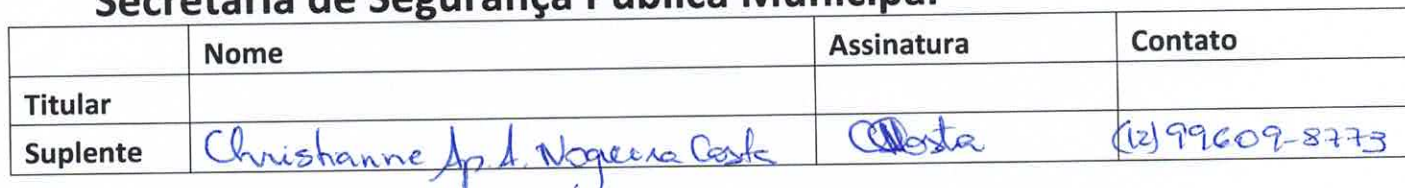 Secretaria de Segurança Pública Municipal
Nome Assinatura Contato
Titular
Suplente Christianne Ap. A. Nogueira Costa Costa (12) 99609-8773